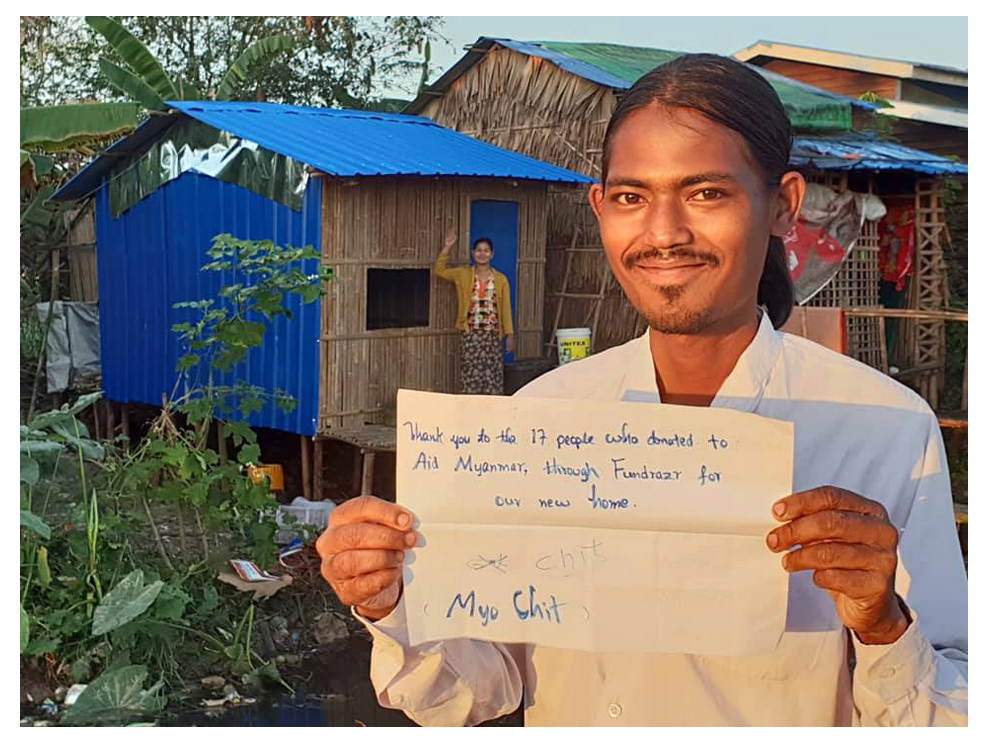 Thank you to the 17 people who donated to
Aid Myanmar, through Fundrazr for
our new home.
chit
( Myo Chit )
UNITEX